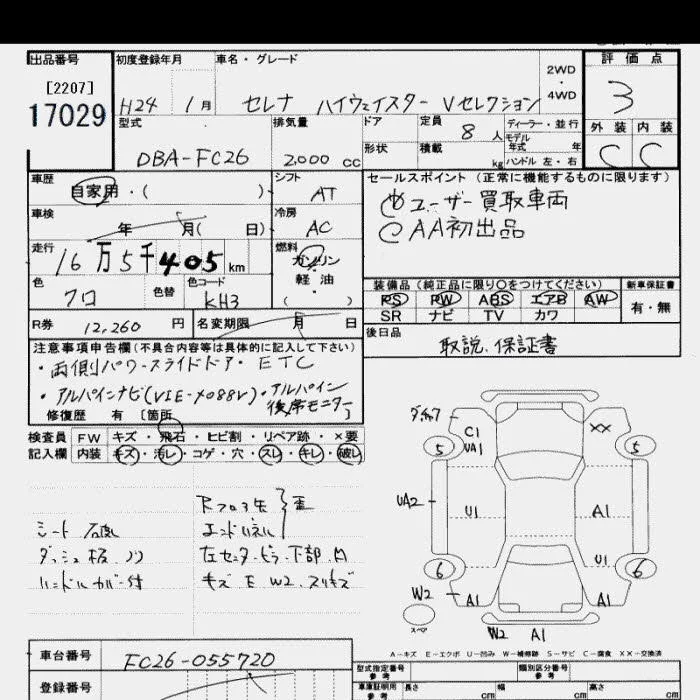 出品番号 初度登録年月 車名・グレード 評価点
[2207]
17029
H24 1月 セレナ ハイウェイスター Vセレクション 2WD・4WD 3
型式 排気量 ドア 定員 8人 ディーラー・並行 外装 内装
DBA-FC26 2,000 cc 形状 積載 kg モデル年式 年 ハンドル 左・右 C C
車歴 シフト セールスポイント(正常に機能するものに限ります)
自家用・( ) AT ①ユーザー買取車両
車検 冷房 ②AA初出品
年 月( 日) AC
走行 燃料
16万5千405km ガソリン・軽油・( )
色 色替 色コード 装備品(純正品に限り○をつけてください) 新車保証書
クロ KH3 PS PW ABS エアB AW 有・無
SR ナビ TV カワ
R券 12,260 円 名変期限 月 日 後日品
取説、保証書
注意事項申告欄(不具合内容等は具体的に記入して下さい)
・両側パワースライドドア・ETC
・アルパインナビ(VIE-X088V)・アルパイン
後席モニター
修復歴 有 [箇所 ]
検査員 FW キズ・飛石・ヒビ割・リペア跡・×要
記入欄 内装 キズ・汚レ・コゲ・穴・スレ・キレ・破レ
シート 破レ
エンドパネル
左センターピラー下部凹
ハンドルカバー付 キズ E W2 スリキズ
C1 XX
UA1
5 5
UA2 U1 A1
U1
6 6
W2 A1 A1
スペア
W2 A1
A-キズ E-エクボ U-凹み W-補修跡 S-サビ C-腐食 XX-交換済
車台番号 FC26-055720
型式指定番号 類別区分番号
登録番号 車庫証明用 長さ cm 幅 cm 高さ cm